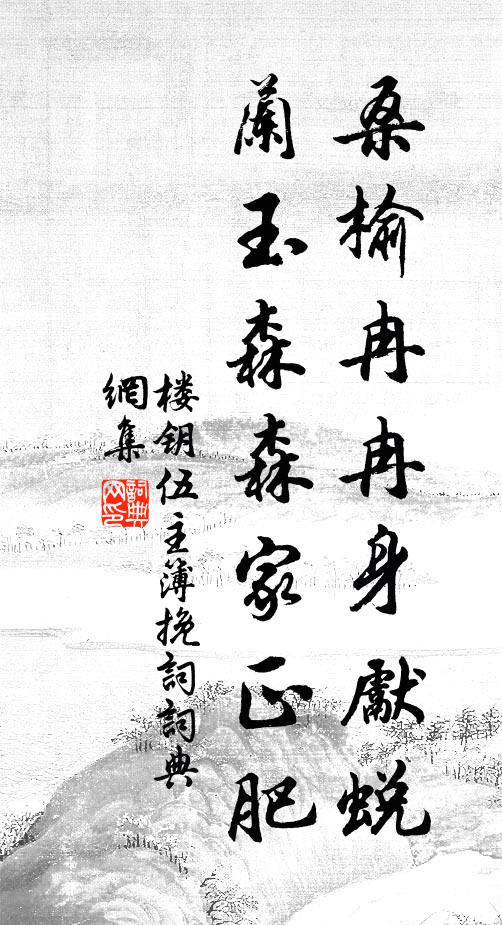 桑榆冉冉身獻蛻
蘭玉森森家正肥
楼钥伍主簿挽詞詞典
網集
詞典
网印